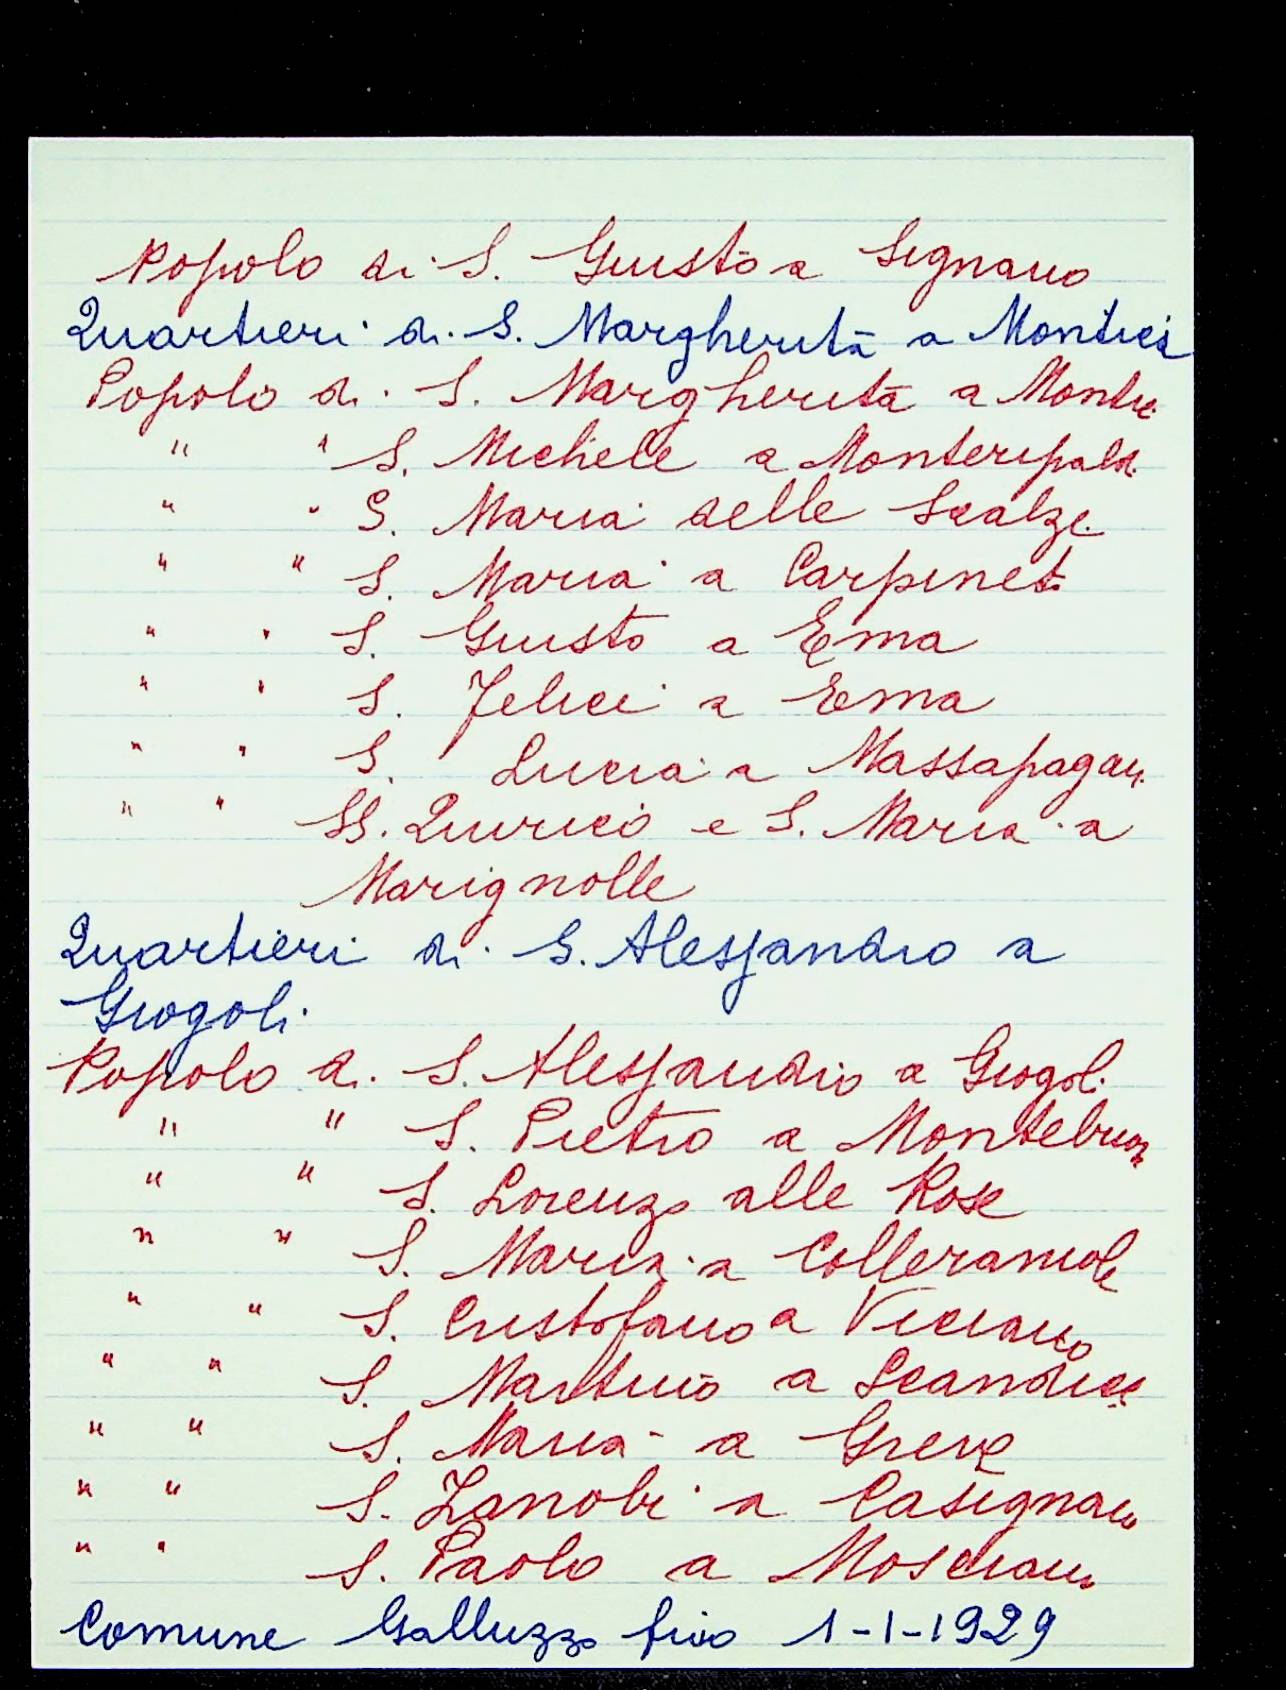 Popolo di S. Giusto a Signano
Quartieri di S. Margherita a Montici
Popolo di S. Margherita a Montici
" " S. Michele a Monteripaldi
" " S. Maria delle Scalze
" " S. Maria a Carpineto
" " S. Giusto a Ema
" " S. Felice a Ema
" " S. Lucia a Massapagani
" " SS. Quirico e S. Maria a
Marignolle
Quartieri di S. Alessandro a
Giogoli
Popolo di S. Alessandro a Giogoli
" " S. Pietro a Montebuoni
" " S. Lorenzo alle Rose
" " S. Maria a Colleramole
" " S. Cristofano a Viciano
" " S. Martino a Scandicci
" " S. Maria a Greve
" " S. Zanobi a Casignano
" " S. Paolo a Mosciano
Comune Galluzzo fino 1-1-1929